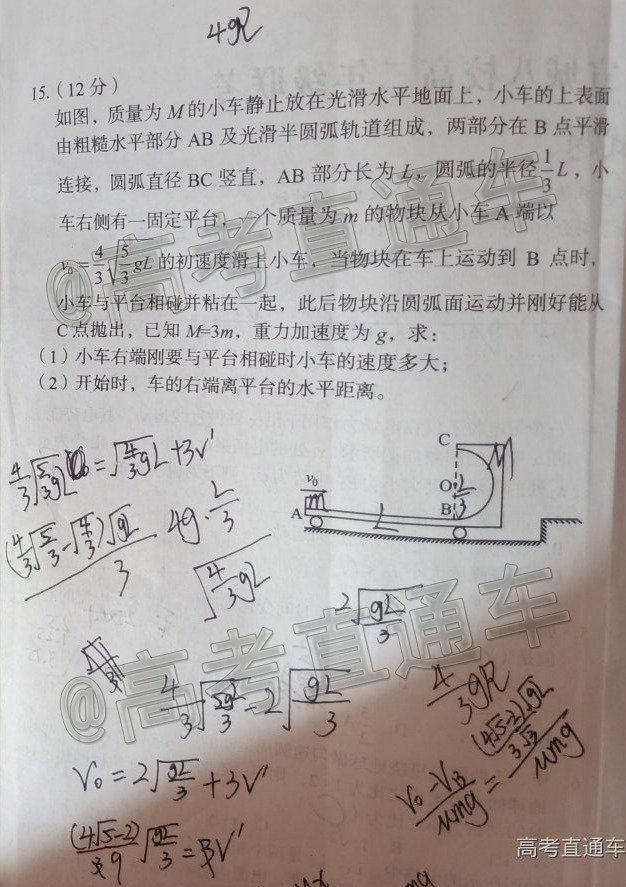 4gR
15.（12 分）
如图，质量为 M 的小车静止放在光滑水平地面上，小车的上表面
由粗糙水平部分 AB 及光滑半圆弧轨道组成，两部分在 B 点平滑
连接，圆弧直径 BC 竖直，AB 部分长为 L，圆弧的半径 1/3 L，小
车右侧有一固定平台，一个质量为 m 的物块从小车 A 端以
v₀ = 4/3 √(5/3 gL) 的初速度滑上小车，当物块在车上运动到 B 点时，
小车与平台相碰并粘在一起，此后物块沿圆弧面运动并刚好能从
C 点抛出，已知 M=3m，重力加速度为 g，求：
（1）小车右端刚要与平台相碰时小车的速度多大；
（2）开始时，车的右端离平台的水平距离。
C
M
O
L/3
B
v₀
m
A
L
= √(4/3 gL) + 3V'
(4/3 √(5/3) - √(4/3)) √gL
3
4g · L/3
√(4/3 gL)
2√(gL/3)
4/3 gR
V₀ = 2√(gL/3) + 3V'
(V₀ - V_B)/umg = ((4√5-2)√gL / 3√3)/umg
@高考直通车
@高考直通车
高考直通车